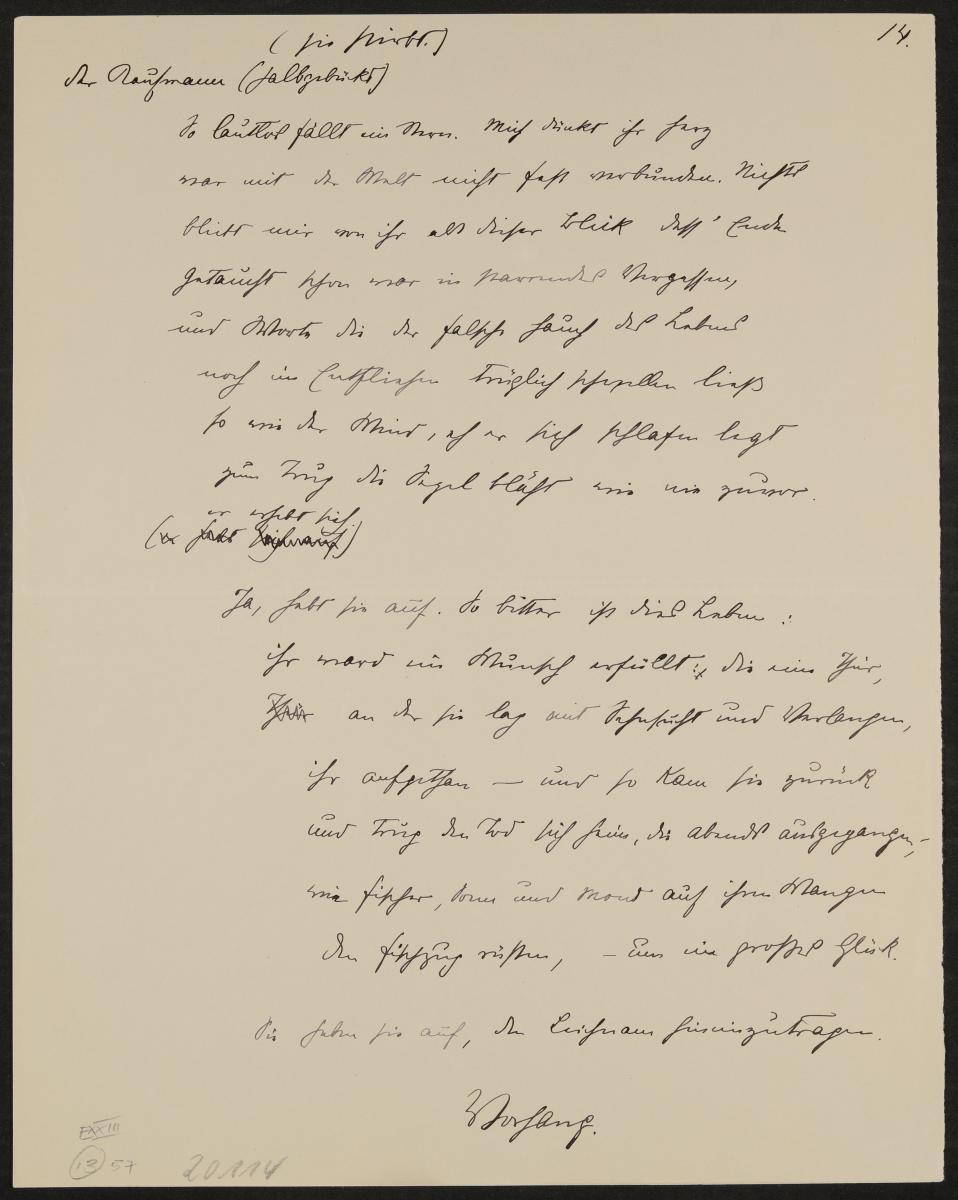 14.
(sie stirbt.)
der Kaufmann (halbgebückt)
So lautlos fällt ein Stern. Mich dünkt ihr Herz
war mit der Welt nicht fest verbunden. Nichts
bleibt mir von ihr als dieser Blick dess' Ende
getaucht schon war in starrendes Vergessen,
und Worte die der falsche Hauch des Lebens
noch im Entfliehen trüglich schwellen ließ
so wie der Wind, eh er sich schlafen legt
zum Trug die Segel bläht wie nie zuvor.
er erhebt sich.
(er steht
Ja, hebt sie auf. So bitter ist dies Leben:
ihr ward ein Wunsch erfüllt: die eine Thür,
Thür an der sie lag mit Sehnsucht und Verlangen,
ihr aufgethan — und so kam sie zurück
und trug den Tod sich heim, die abends ausgegangen,
wie Fischer, Sonne und Mond auf ihren Wangen
den Fischzug rüsten, – um ein großes Glück.
Sie heben sie auf, den Leichnam hineinzutragen.
Vorhang.
XXIII
13 57
20114